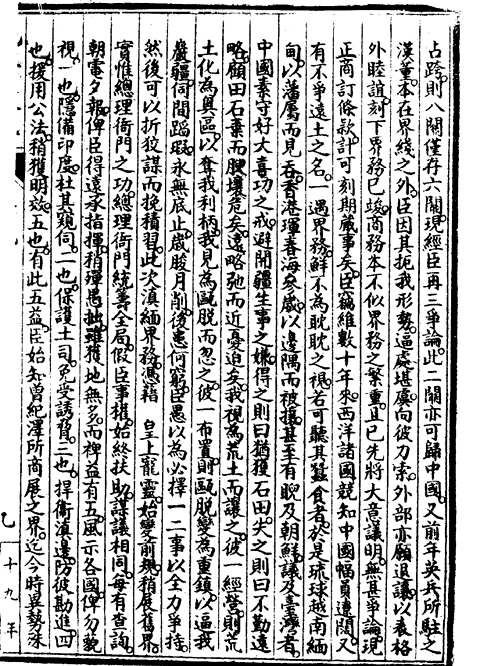 占踞則八關僅存六關現經臣再三爭論此二關亦可歸中國又前年英兵所駐之
漢董本在界綫之外臣因其扼我形勢逼處堪虞向彼力索外部亦願退讓以表格
外睦誼刻下界務已竣商務本不似界務之繁重且已先將大意議明無甚爭論現
正商訂條款計可刻期蕆事矣臣竊維數十年來西洋諸國競知中國幅員遼闊又
有不爭遠土之名一遇界務鮮不為耽耽之視若可聽其蠶食者於是琉球越南緬
甸以藩屬而見吞香港琿春海參崴以邊隅而被攘甚至有睨及朝鮮議及臺灣者
中國素守好大喜功之戒避開疆生事之嫌得之則曰猶獲石田失之則曰不勤遠
略顧田石棄而腴壤危矣遠略弛而近憂迫矣我視為荒土而讓之彼一經營則荒
土化為奧區以奪我利柄我見為甌脫而忽之彼一布置則甌脫變為重鎮以逼我
巖疆伺間蹈瑕永無底止歲朘月削後患何窮臣愚以為必擇一二事以全力爭持
然後可以折狡謀而挽積習此次滇緬界務憑藉 皇上寵靈始變前規稍展舊界
實惟總理衙門之功總理衙門統籌全局假臣事權始終扶助謀議相同每有查詢
朝電夕報俾臣得遠承指揮稍殫愚拙雖獲地無多而裨益有五風示各國俾勿藐
視一也隱備印度杜其窺伺二也保護土司免受誘脅三也捍衞滇邊防彼勘進四
也援用公法稍獲明效五也有此五益臣始知曾紀澤所商展之界迄今時異勢殊
乙
十九年